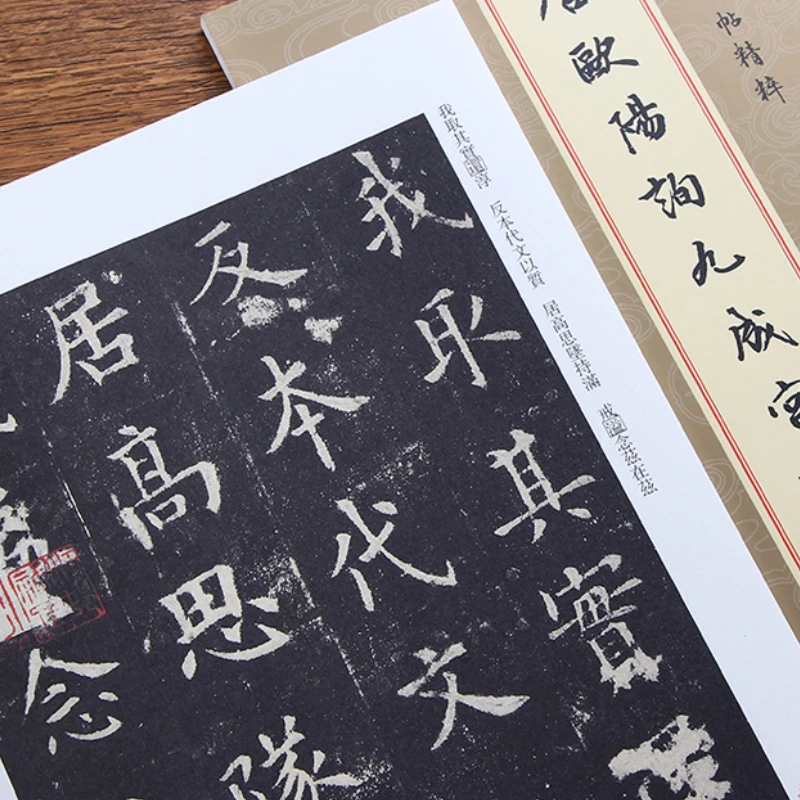 帖精粹
唐歐陽詢九成宮
我取其實還淳 反本代文以質 居高思墜持滿 戒溢念茲在茲
我取其實
反本代文
居高思隊
念